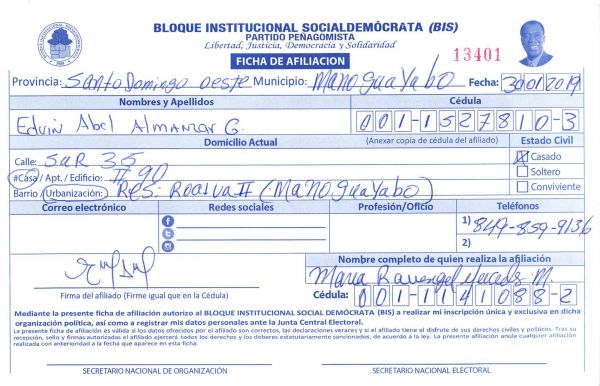 BLOQUE INSTITUCIONAL SOCIALDEMÓCRATA (BIS)
PARTIDO PEÑAGOMISTA
Libertad, Justicia, Democracia y Solidaridad
FICHA DE AFILIACION
13401
Provincia: Santo Domingo oeste Municipio: Manoguayabo Fecha: 30/01/2019
Nombres y Apellidos Cédula
Edwin Abel Almanzar G. 001-1527810-3
Domicilio Actual (Anexar copia de cédula del afiliado) Estado Civil
Calle: Sur 35 Casado
#Casa / Apt. / Edificio: #90 Soltero
Barrio / Urbanización: Res: Rosalva II (Manoguayabo) Conviviente
Correo electrónico Redes sociales Profesión/Oficio Teléfonos
1) 849-859-9136
2)
Nombre completo de quien realiza la afiliación
Maria M.
Firma del afiliado (Firme igual que en la Cédula) Cédula: 001-1141088-2
Mediante la presente ficha de afiliación autorizo al BLOQUE INSTITUCIONAL SOCIAL DEMÓCRATA (BIS) a realizar mi inscripción única y exclusiva en dicha
organización política, así como a registrar mis datos personales ante la Junta Central Electoral.
La presente ficha de afiliación es válida si los datos ofrecidos por el afiliado son correctos, las declaraciones veraces y si el afiliado tiene el disfrute de sus derechos civiles y políticos. Tras su
recepción, sello y firmas autorizadas el afiliado ejercerá todos los derechos y los deberes estatutariamente sancionados, de acuerdo a la ley. La presente afiliación anula cualquier afiliación
realizada con anterioridad a la fecha que aparece en esta ficha.
SECRETARIO NACIONAL DE ORGANIZACIÓN SECRETARIO NACIONAL ELECTORAL